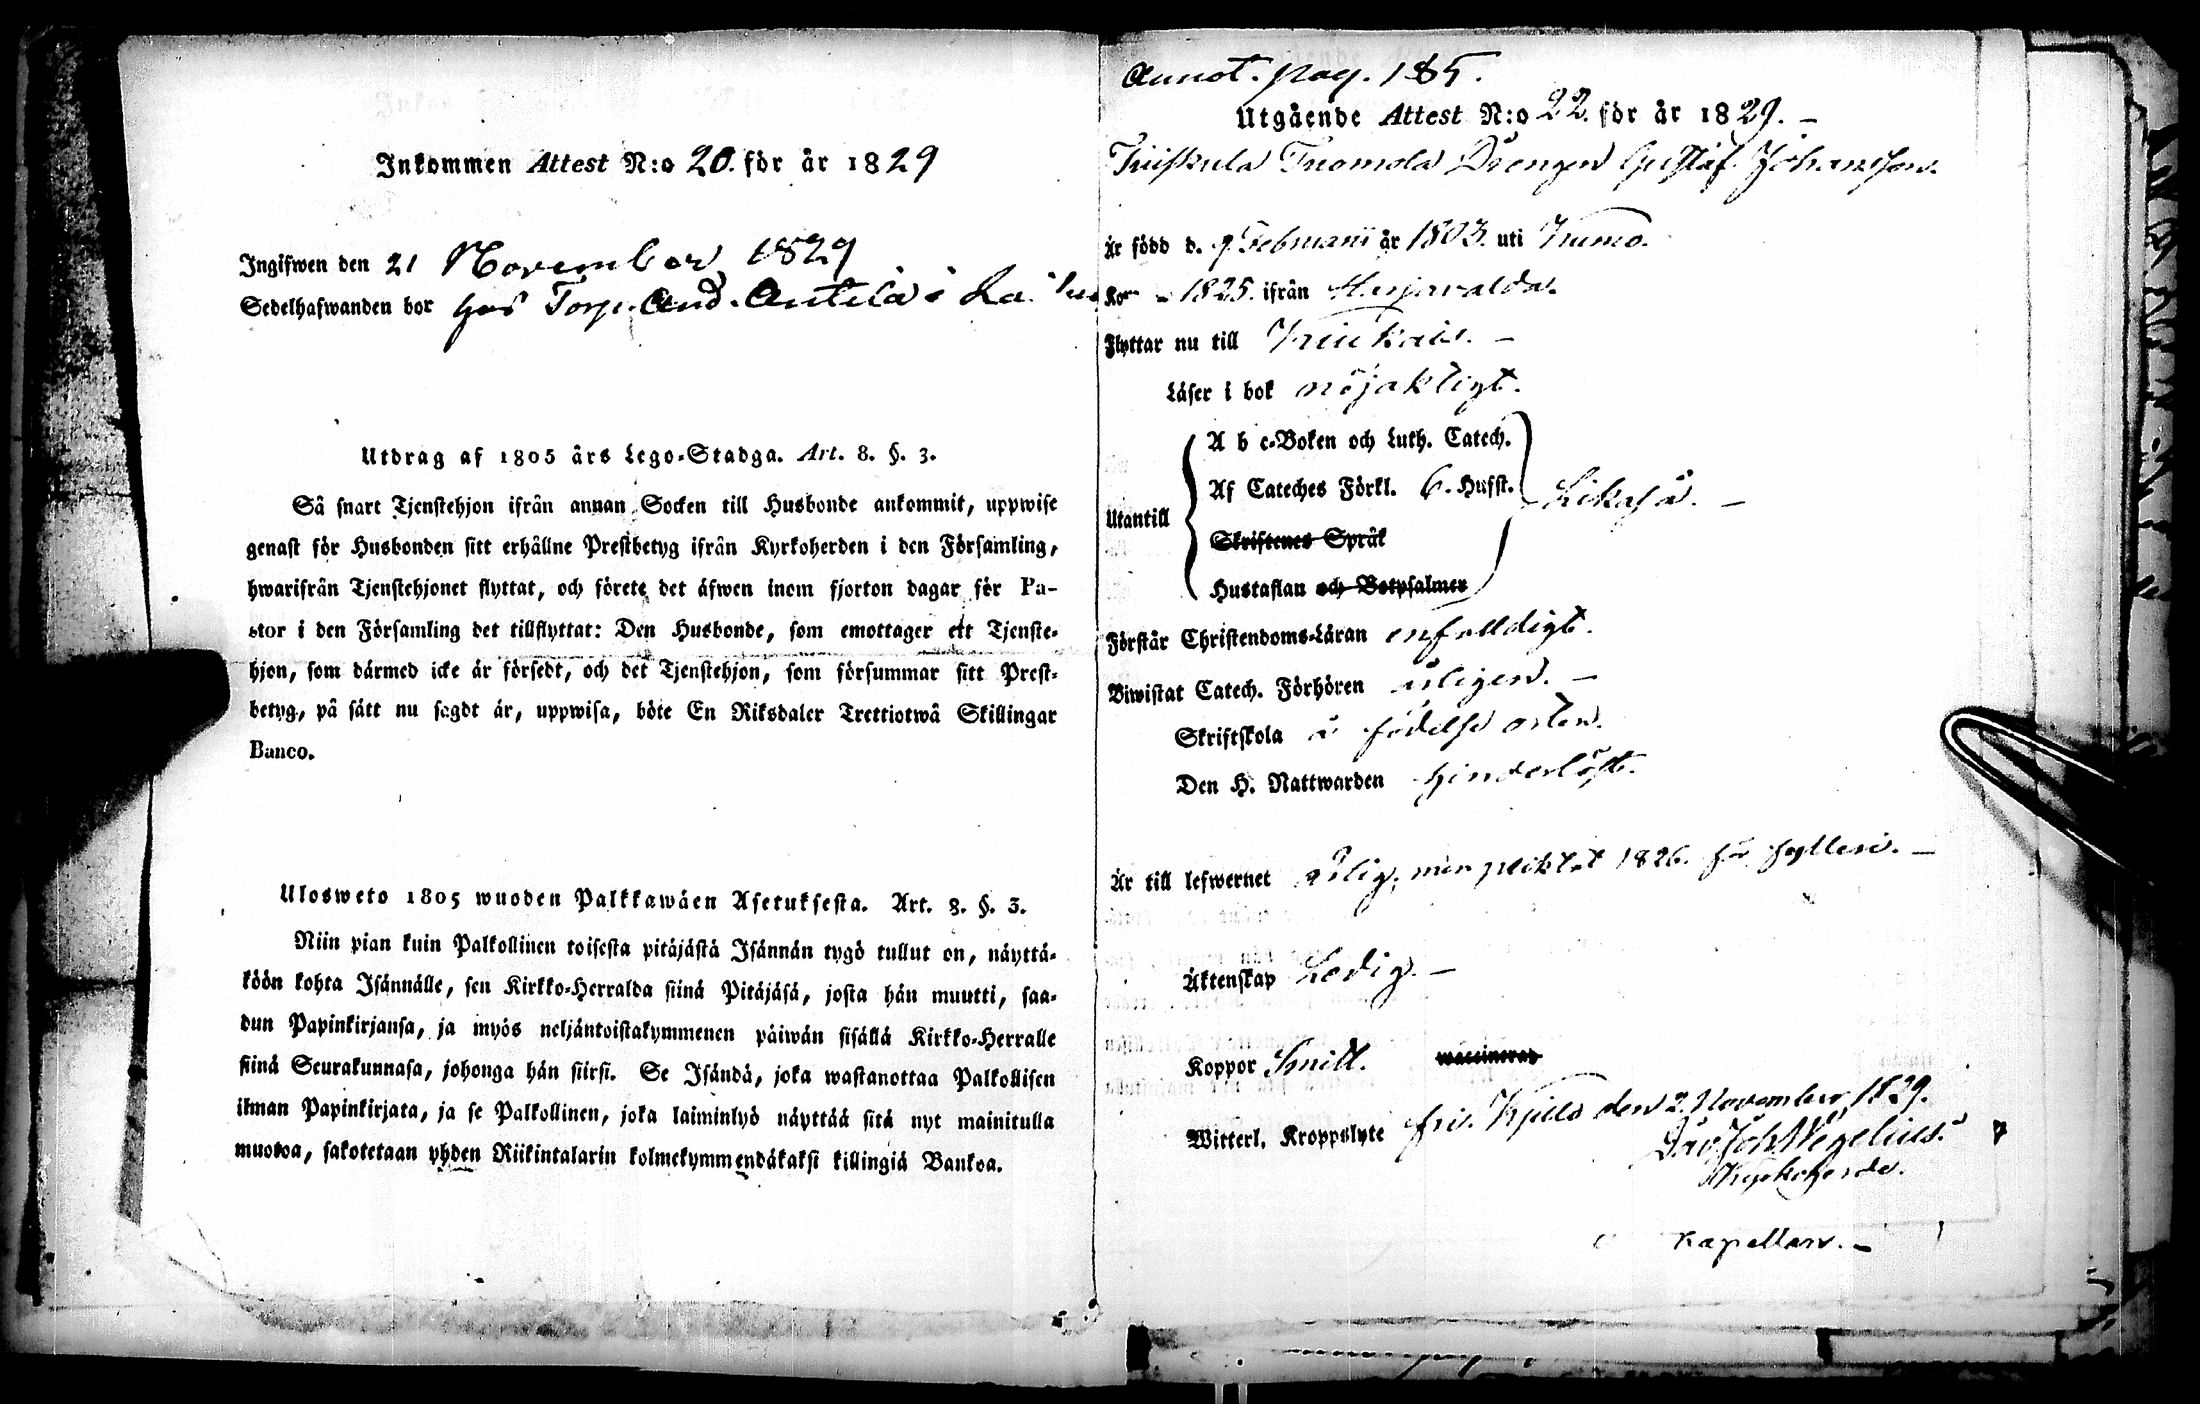 Inkommen Attest N:o 20. för år 1829
Ingifwen den 21 November 1829
Sedelhafwanden bor hos Torp. And. Anttila i
Utdrag af 1805 års Lego-Stadga. Art. 8. §. 3.
Så snart Tjenstehjon ifrån annan Socken till Husbonde ankommit, uppwise
genast för Husbonden sitt erhållne Prestbetyg ifrån Kyrkoherden i den Församling,
hwarifrån Tjenstehjonet flyttat, och förete det äfwen inom fjorton dagar för Pa-
stor i den Församling det tillflyttat: Den Husbonde, som emottager ett Tjenste-
hjon, som därmed icke är försedt, och det Tjenstehjon, som försummar sitt Prest-
betyg, på sätt nu sagdt är, uppwisa, böte En Riksdaler Trettiotwå Skillingar
Banco.
Ulosweto 1805 wuoden Palkkawäen Asetuksesta. Art. 8. §. 3.
Niin pian kuin Palkollinen toisesta pitäjästä Isännän tygö tullut on, näyttä-
köön kohta Isännälle, sen Kirkko-Herralda siinä Pitäjäsä, josta hän muutti, saa-
dun Papinkirjansa, ja myös neljäntoistakymmenen päiwän sisällä Kirkko-Herralle
siinä Seurakunnasa, johonga hän siirsi. Se Isändä, joka wastanottaa Palkollisen
ilman Papinkirjata, ja se Palkollinen, joka laiminlyö näyttää sitä nyt mainitulla
muotoa, sakotetaan yhden Riikintalarin kolmekymmendäkaksi killingiä Bankoa.
Annot. pag. 185.
Utgående Attest N:o 22. för år 1829. –
Tuomola Drengen Gustaf Johansson.
Är född d. 9 Februarii år 1803. uti
Kom 1825. ifrån Harjavalda.
Flyttar nu till Kiukais. –
Läser i bok nöjaktigt.
A b c-Boken och Luth. Catech.
Af Cateches Förkl. 6. Hufst.
Utantill Likaså. –
Skriftenes Språk
Hustaflan och Botpsalmer
Förstår Christendoms-Läran enfaldigt.
Biwistat Catech. Förhören årligen. –
Skriftskola å födelse orten.
Den H. Nattwarden hinderlöst.
Är till lefwernet ärlig, men pliktat 1826. för fylleri. –
Äktenskap Ledig. –
Koppor Smitt. waccinerad
Witterl. Kroppslyte fri. Kjulo den 2. November 1829.
Dav. Joh. Wegelius.
Kyrkoherde.
Kapellan. –